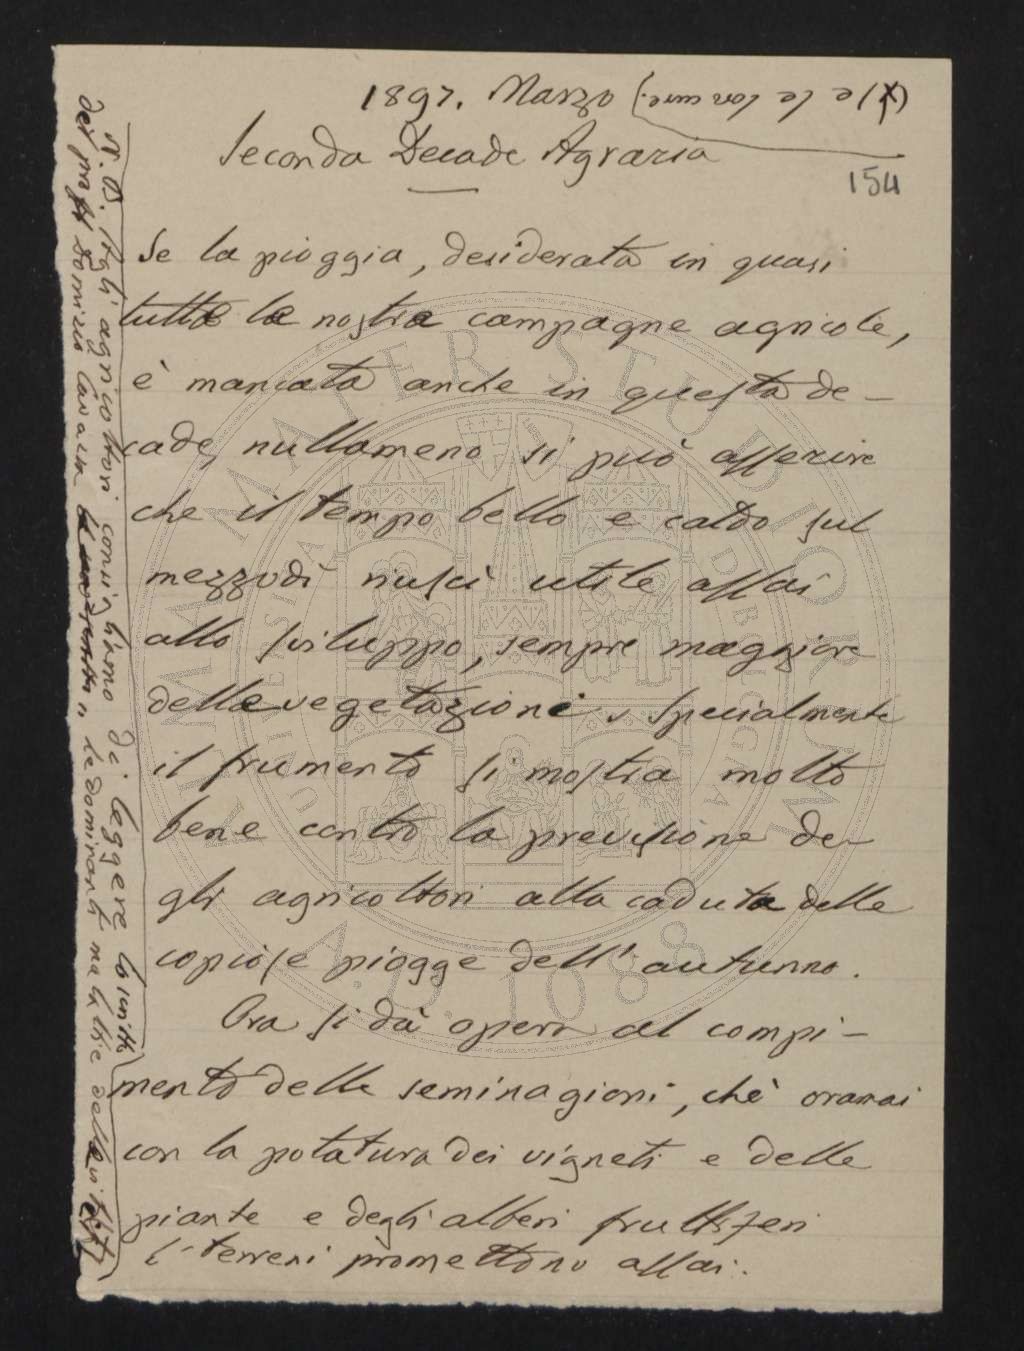 1897. Marzo
(x) e le lor cure.)
Seconda Decade Agraria
154
Se la pioggia, desiderata in quasi
tutte le nostre campagne agricole,
è mancata anche in questa de-
cade, nullameno si può asserire
che il tempo bello e caldo sul
mezzodì riuscì utile assai
allo sviluppo, sempre maggiore
delle vegetazioni, specialmente
il frumento si mostra molto
bene contro la previsione de-
gli agricoltori alla caduta delle
copiose piogge dell'autunno.
Ora si dà opera al compi-
mento delle seminagioni, chè oramai
con la potatura dei vigneti e delle
piante e degli alberi fruttiferi
i terreni promettono assai.
N.B. Agli agricoltori consigliamo di leggere lo scritto
del prof. Domizio Cavazza le dominanti malattie della vite
ALMA MATER STUDIORUM
A.D. 1088